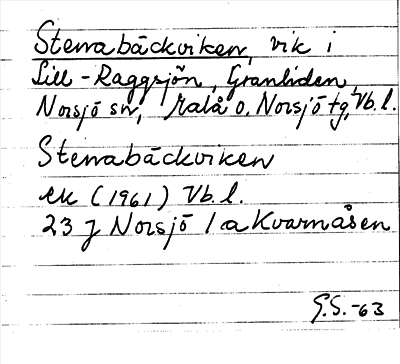 Sterrabäckviken, vik i
Lill-Raggsjön, Granliden,
Norsjö sn, Malå o. Norsjö tg, Vb.l.
Sterrabäckviken
ek (1961) Vb.l.
23 J Norsjö 1 a Kvarnåsen
G.S. -63